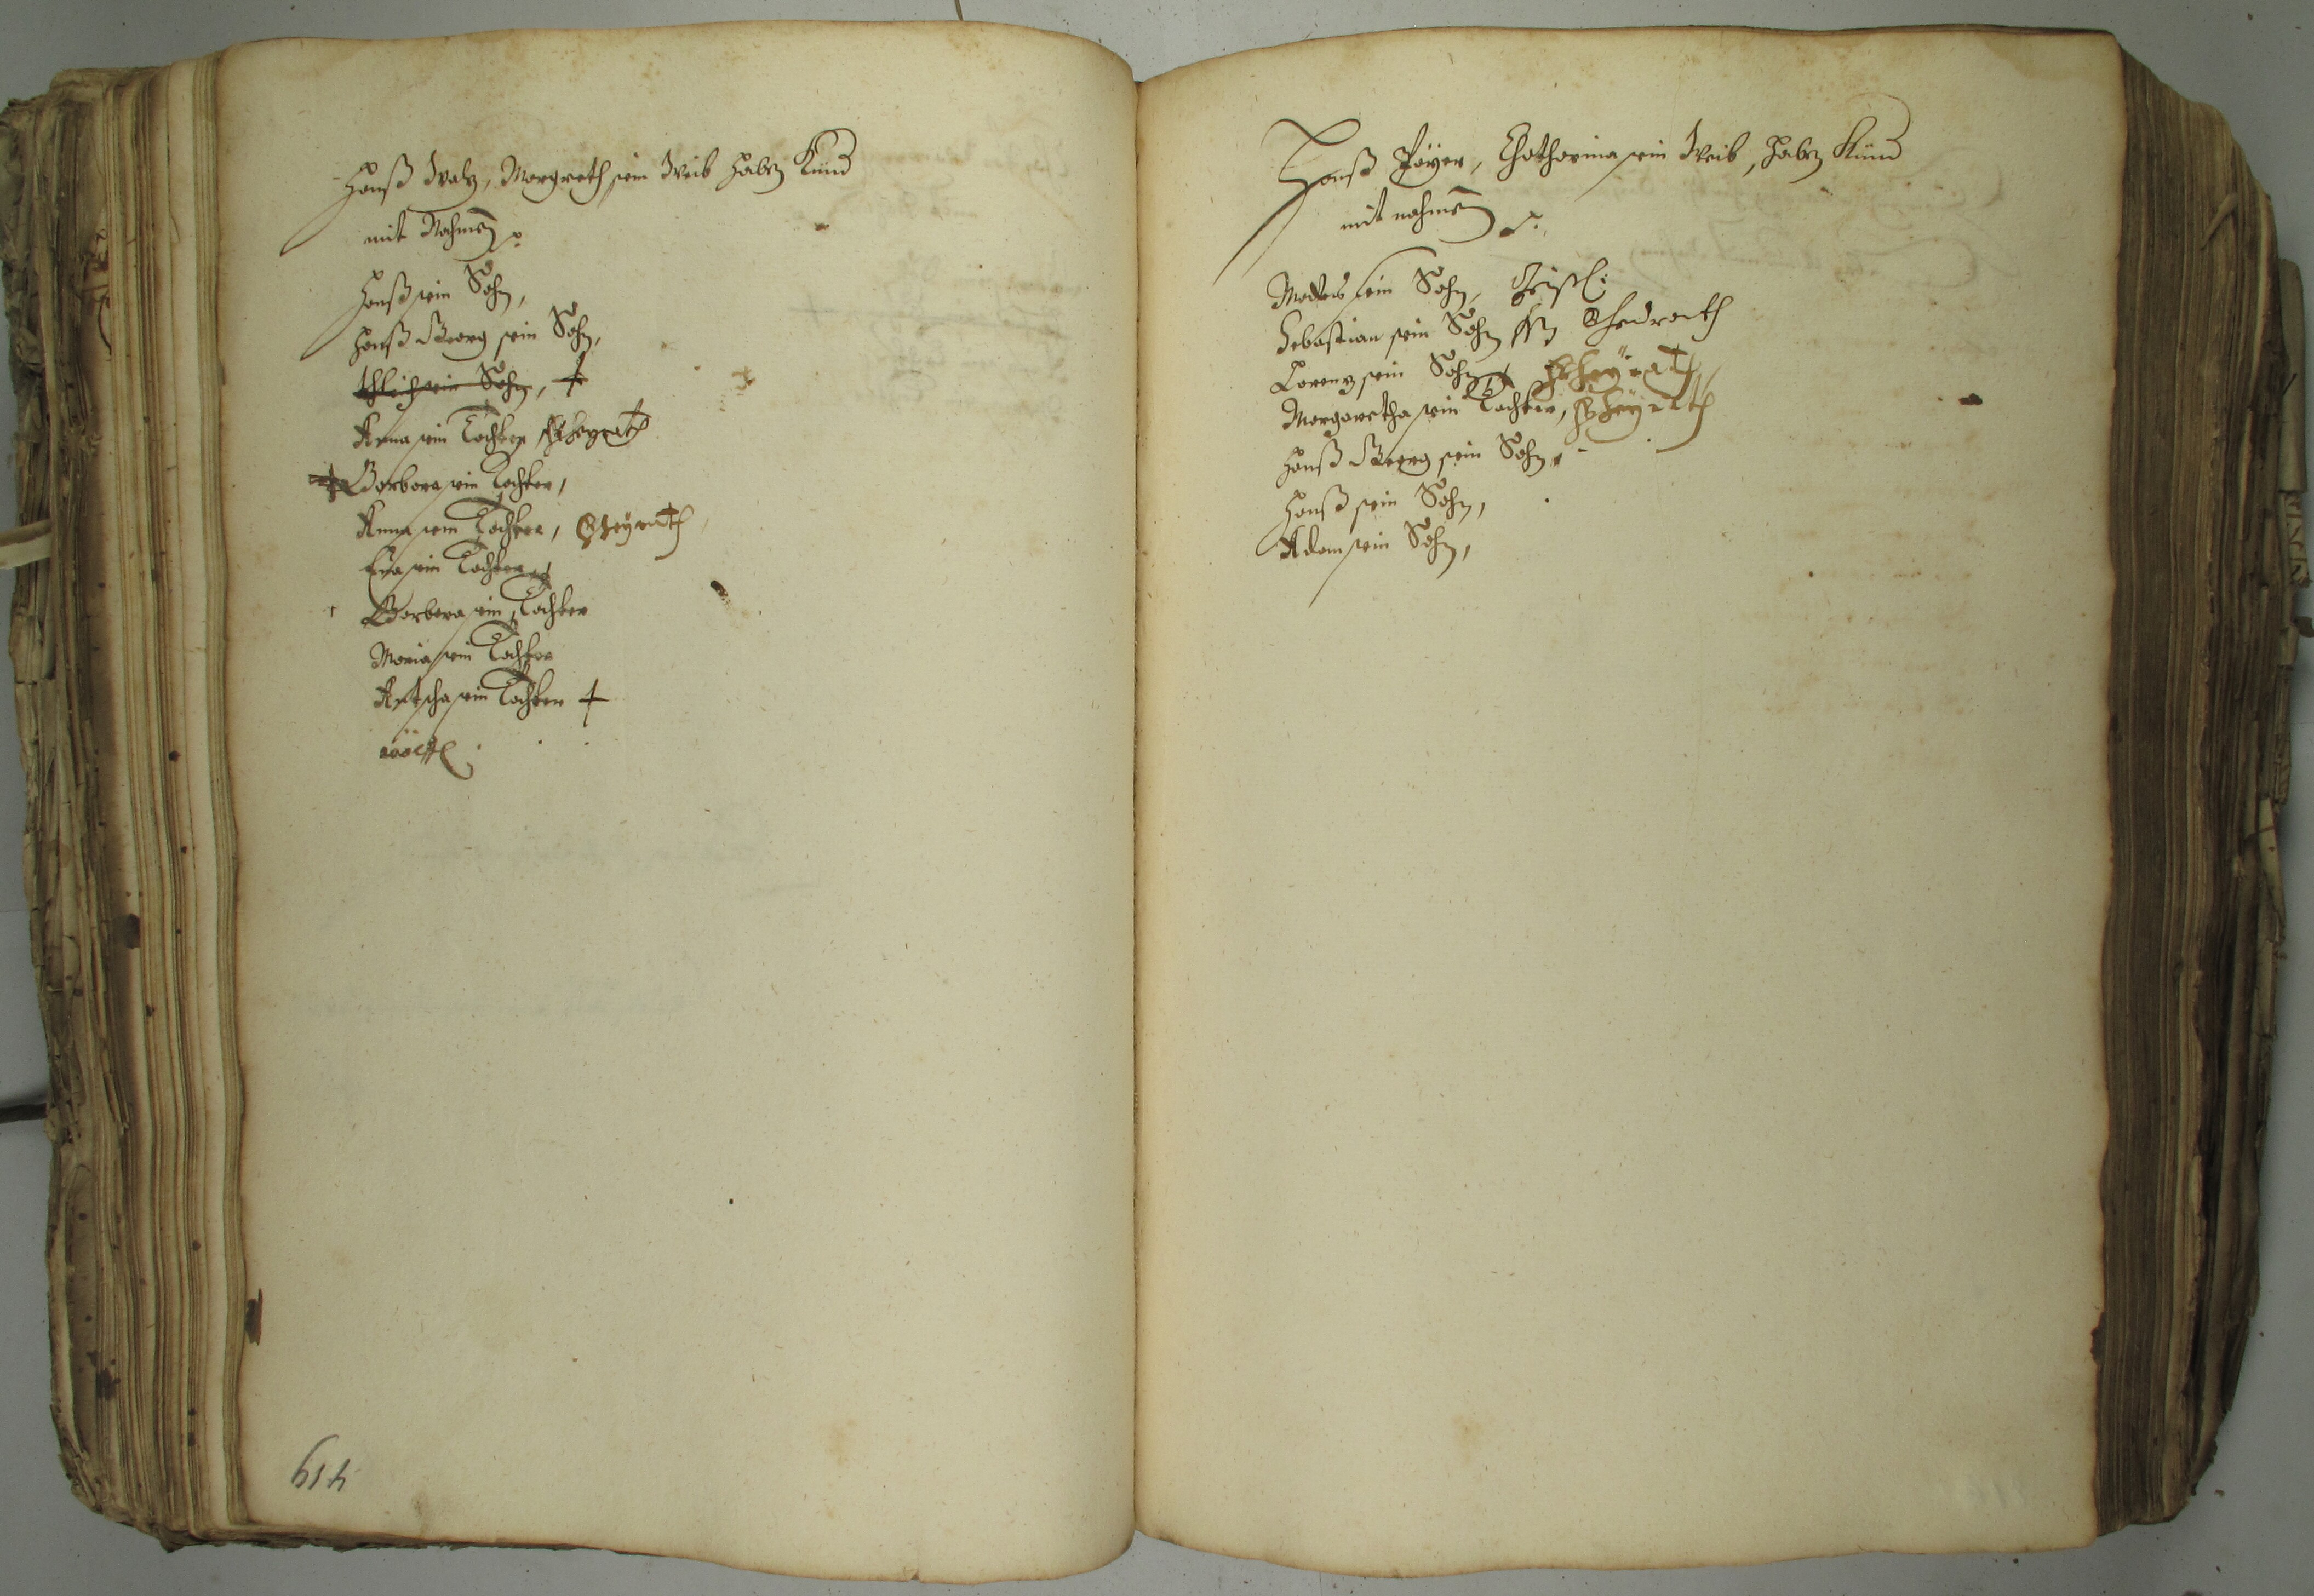 Hanß Walz, Margreth sein Weib haben Kind
mit Nahmen
Hanß sein Sohn,
Hanß Georg sein Sohn,
sein Sohn, †
Anna sein Tochter verheyrath
† Barbara sein Tochter,
Anna sein Tochter, verheyrath
Eva sein Tochter
Barbara sein Tochter
Maria sein Tochter
sein Tochter †
419
Hanß Payer, Chatharina sein Weib, haben Kind
mit nahmen
Mattes sein Sohn,
Sebastian sein Sohn
Lorenz sein Sohn verheyrath
Margaretha sein Tochter, verheyrath
Hanß Georg sein Sohn,
Hanß sein Sohn,
Adam sein Sohn,